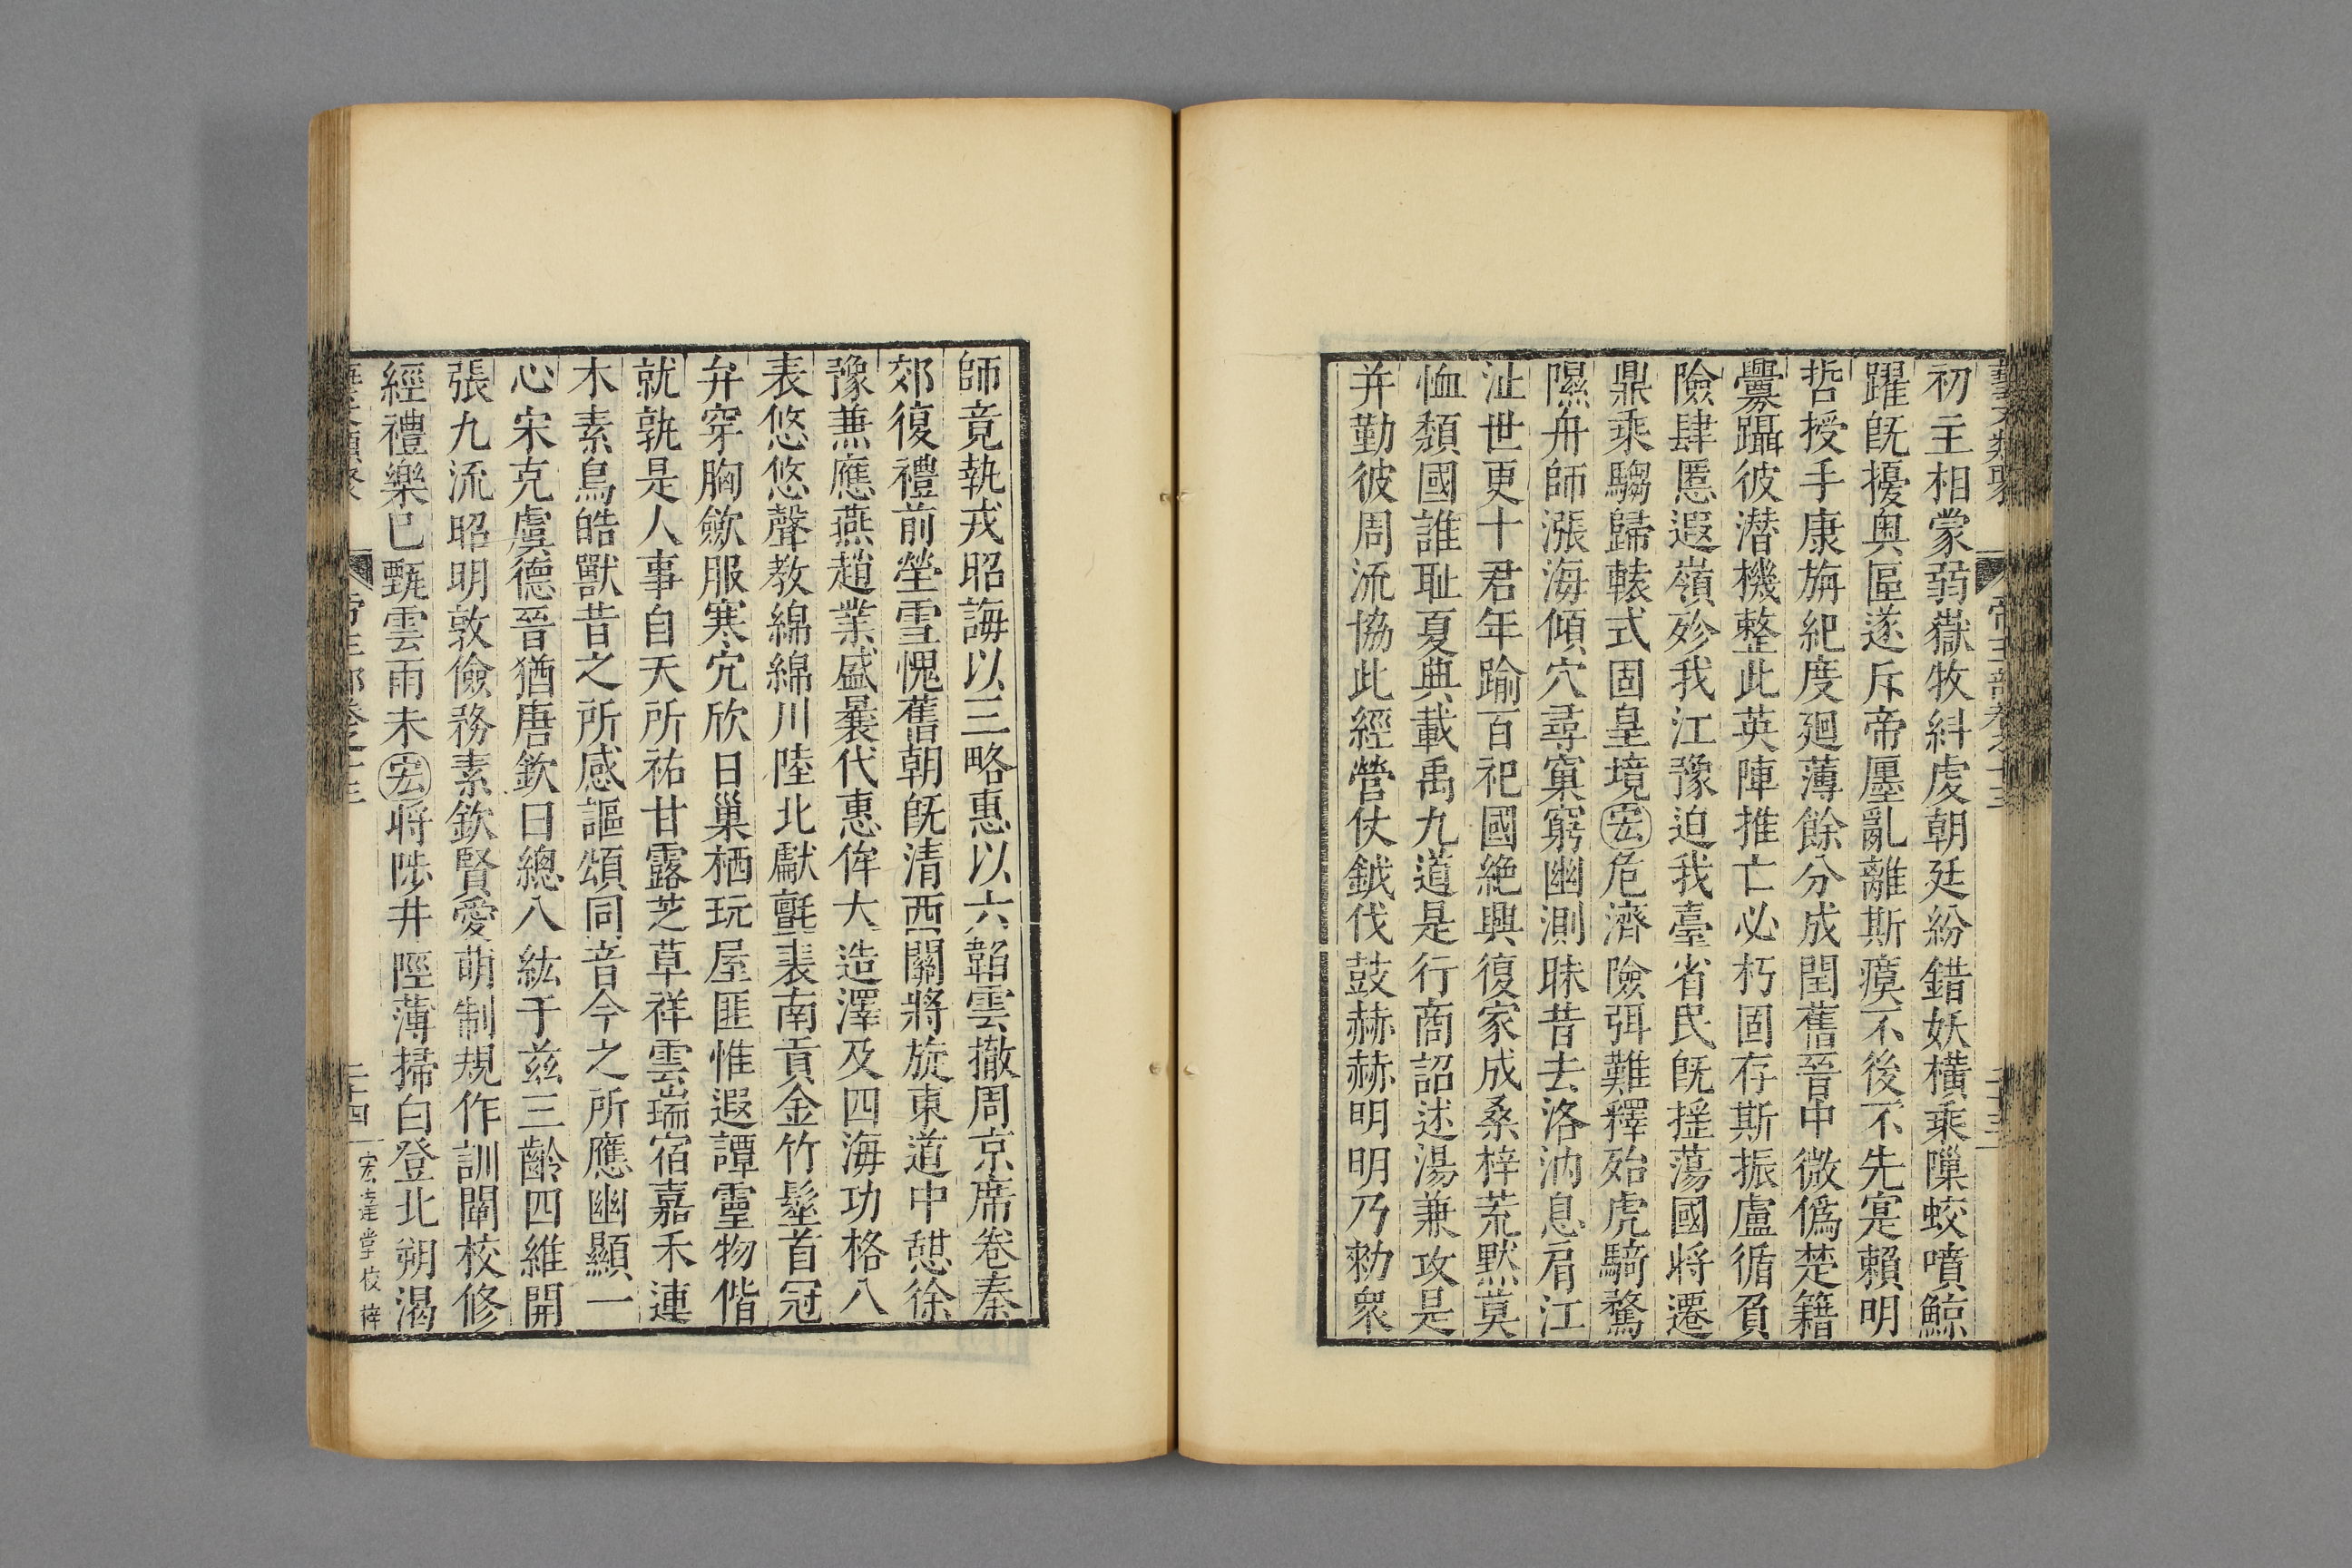 藝文類聚 帝王部卷之十三 二十三
初主相蒙弱嶽牧紏虔朝廷紛錯妖橫乘隟蛟噴鯨
躍旣擾奥區遂斥帝㕓亂離斯瘼不後不先寔賴明
哲授手康旃紀度廻薄餘分成閏舊晉中微僞楚籍
釁躡彼潜機整此英陣推亡必朽固存斯振盧循負
險肆慝遐嶺殄我江豫迫我臺省民旣揺蕩國將遷
鼎乘騶歸轅式固皇境宏危濟險弭難釋殆虎騎騖
隰舟師漲海傾穴尋窠窮幽測昧昔去洛汭息肩江
沚世更十君年踰百祀國絶興復家成桑梓荒默莫
恤頽國誰耻夏典載禹九道是行商詔述湯兼攻是
并勤彼周流協此經營仗鉞伐鼓赫赫明明乃勑衆
師竟執戎昭誨以三略惠以六韜雲撤周京席卷秦
郊復禮前塋雪愧舊朝旣清西關將旋東道中憇徐
豫兼應燕趙業盛曩代惠侔大造澤及四海功格八
表悠悠聲教綿綿川陸北獻氈裘南貢金竹髽首冠
弁穿胸斂服寒宂欣日巢栖玩屋匪惟遐譚靈物偕
就孰是人事自天所祐甘露芝草祥雲瑞宿嘉禾連
木素烏皓獸昔之所感謳頌同音今之所應幽顯一
心宋克虞德晉猶唐欽曰總八紘于兹三齡四維開
張九流昭明敦儉務素欽賢愛萌制規作訓闡校修
經禮樂已甄雲雨未宏將陟井陘薄掃白登北朔渴
藝文類聚 帝王部卷之十三 二十四 宏達堂校梓